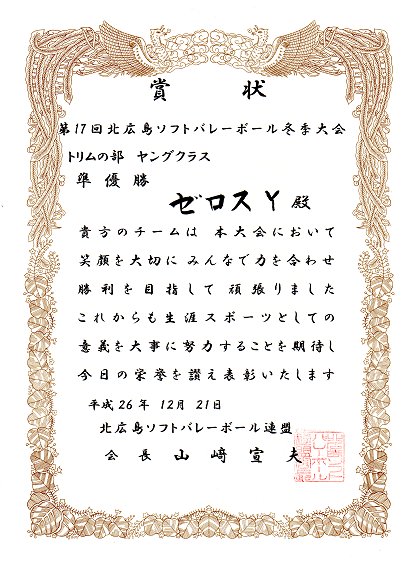 賞状
第17回北広島ソフトバレーボール冬季大会
トリムの部 ヤングクラス
準優勝
ゼロスY 殿
貴方のチームは 本大会において
笑顔を大切に みんなで力を合わせ
勝利を目指して 頑張りました
これからも生涯スポーツとしての
意義を大事に努力することを期待し
今日の栄誉を讃え表彰いたします
平成26年 12月 21日
北広島ソフトバレーボール連盟
会長 山﨑宣夫